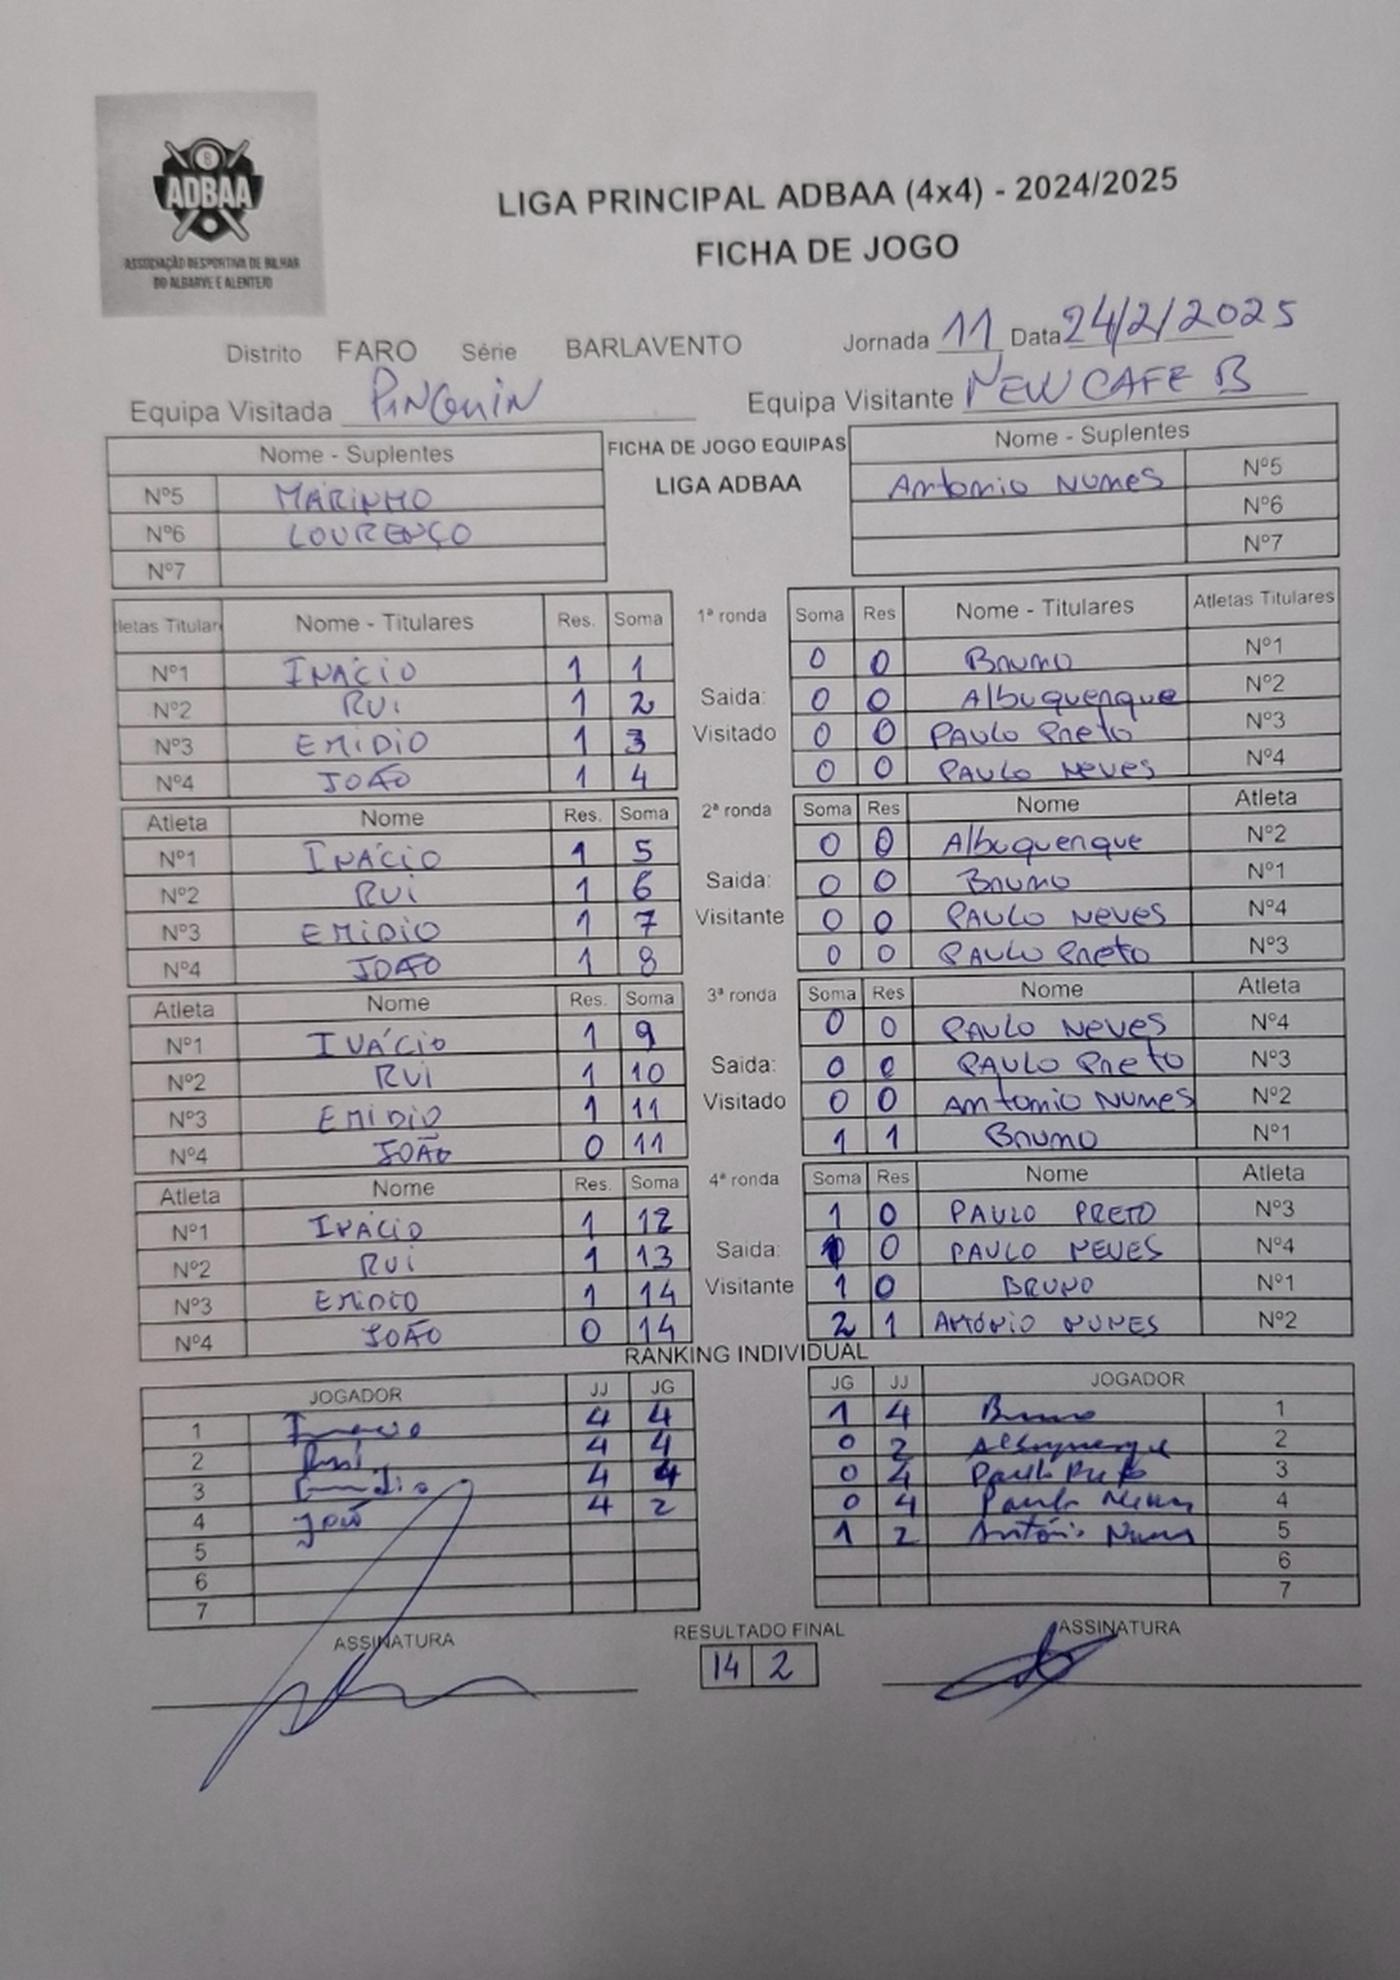 ADBAA
ASSOCIAÇÃO DESPORTIVA DE BILHAR
DO ALGARVE E ALENTEJO
LIGA PRINCIPAL ADBAA (4x4) - 2024/2025
FICHA DE JOGO
Distrito FARO Série BARLAVENTO Jornada 11 Data 24/2/2025
Equipa Visitada PINGUIN Equipa Visitante NEW CAFE B
Nome - Suplentes FICHA DE JOGO EQUIPAS Nome - Suplentes
LIGA ADBAA
Nº5 MARINHO Antonio Nunes Nº5
Nº6 LOURENÇO Nº6
Nº7 Nº7
letas Titular Nome - Titulares Res. Soma 1ª ronda Soma Res Nome - Titulares Atletas Titulares
Nº1 INÁCIO 1 1 0 0 Bruno Nº1
Nº2 RUI 1 2 Saida: 0 0 Albuquerque Nº2
Nº3 EMIDIO 1 3 Visitado 0 0 PAULO Preto Nº3
Nº4 JOÃO 1 4 0 0 PAULO Neves Nº4
Atleta Nome Res. Soma 2ª ronda Soma Res Nome Atleta
Nº1 INÁCIO 1 5 0 0 Albuquerque Nº2
Nº2 RUI 1 6 Saida: 0 0 Bruno Nº1
Nº3 EMIDIO 1 7 Visitante 0 0 PAULO Neves Nº4
Nº4 JOÃO 1 8 0 0 PAULO Preto Nº3
Atleta Nome Res. Soma 3ª ronda Soma Res Nome Atleta
Nº1 INÁCIO 1 9 0 0 PAULO Neves Nº4
Nº2 RUI 1 10 Saida: 0 0 PAULO Preto Nº3
Nº3 EMIDIO 1 11 Visitado 0 0 Antonio Nunes Nº2
Nº4 JOÃO 0 11 1 1 Bruno Nº1
Atleta Nome Res. Soma 4ª ronda Soma Res Nome Atleta
Nº1 INÁCIO 1 12 1 0 PAULO PRETO Nº3
Nº2 RUI 1 13 Saida: 1 0 PAULO NEVES Nº4
Nº3 EMIDIO 1 14 Visitante 1 0 BRUNO Nº1
Nº4 JOÃO 0 14 2 1 ANTÓNIO NUNES Nº2
RANKING INDIVIDUAL
JOGADOR JJ JG JG JJ JOGADOR
1 Inacio 4 4 1 4 Bruno 1
2 Rui 4 4 0 2 Albuquerque 2
3 Emidio 4 4 0 4 Paulo Preto 3
4 João 4 2 0 4 Paulo Neves 4
5 1 2 António Nunes 5
6 6
7 7
ASSINATURA RESULTADO FINAL ASSINATURA
14 2